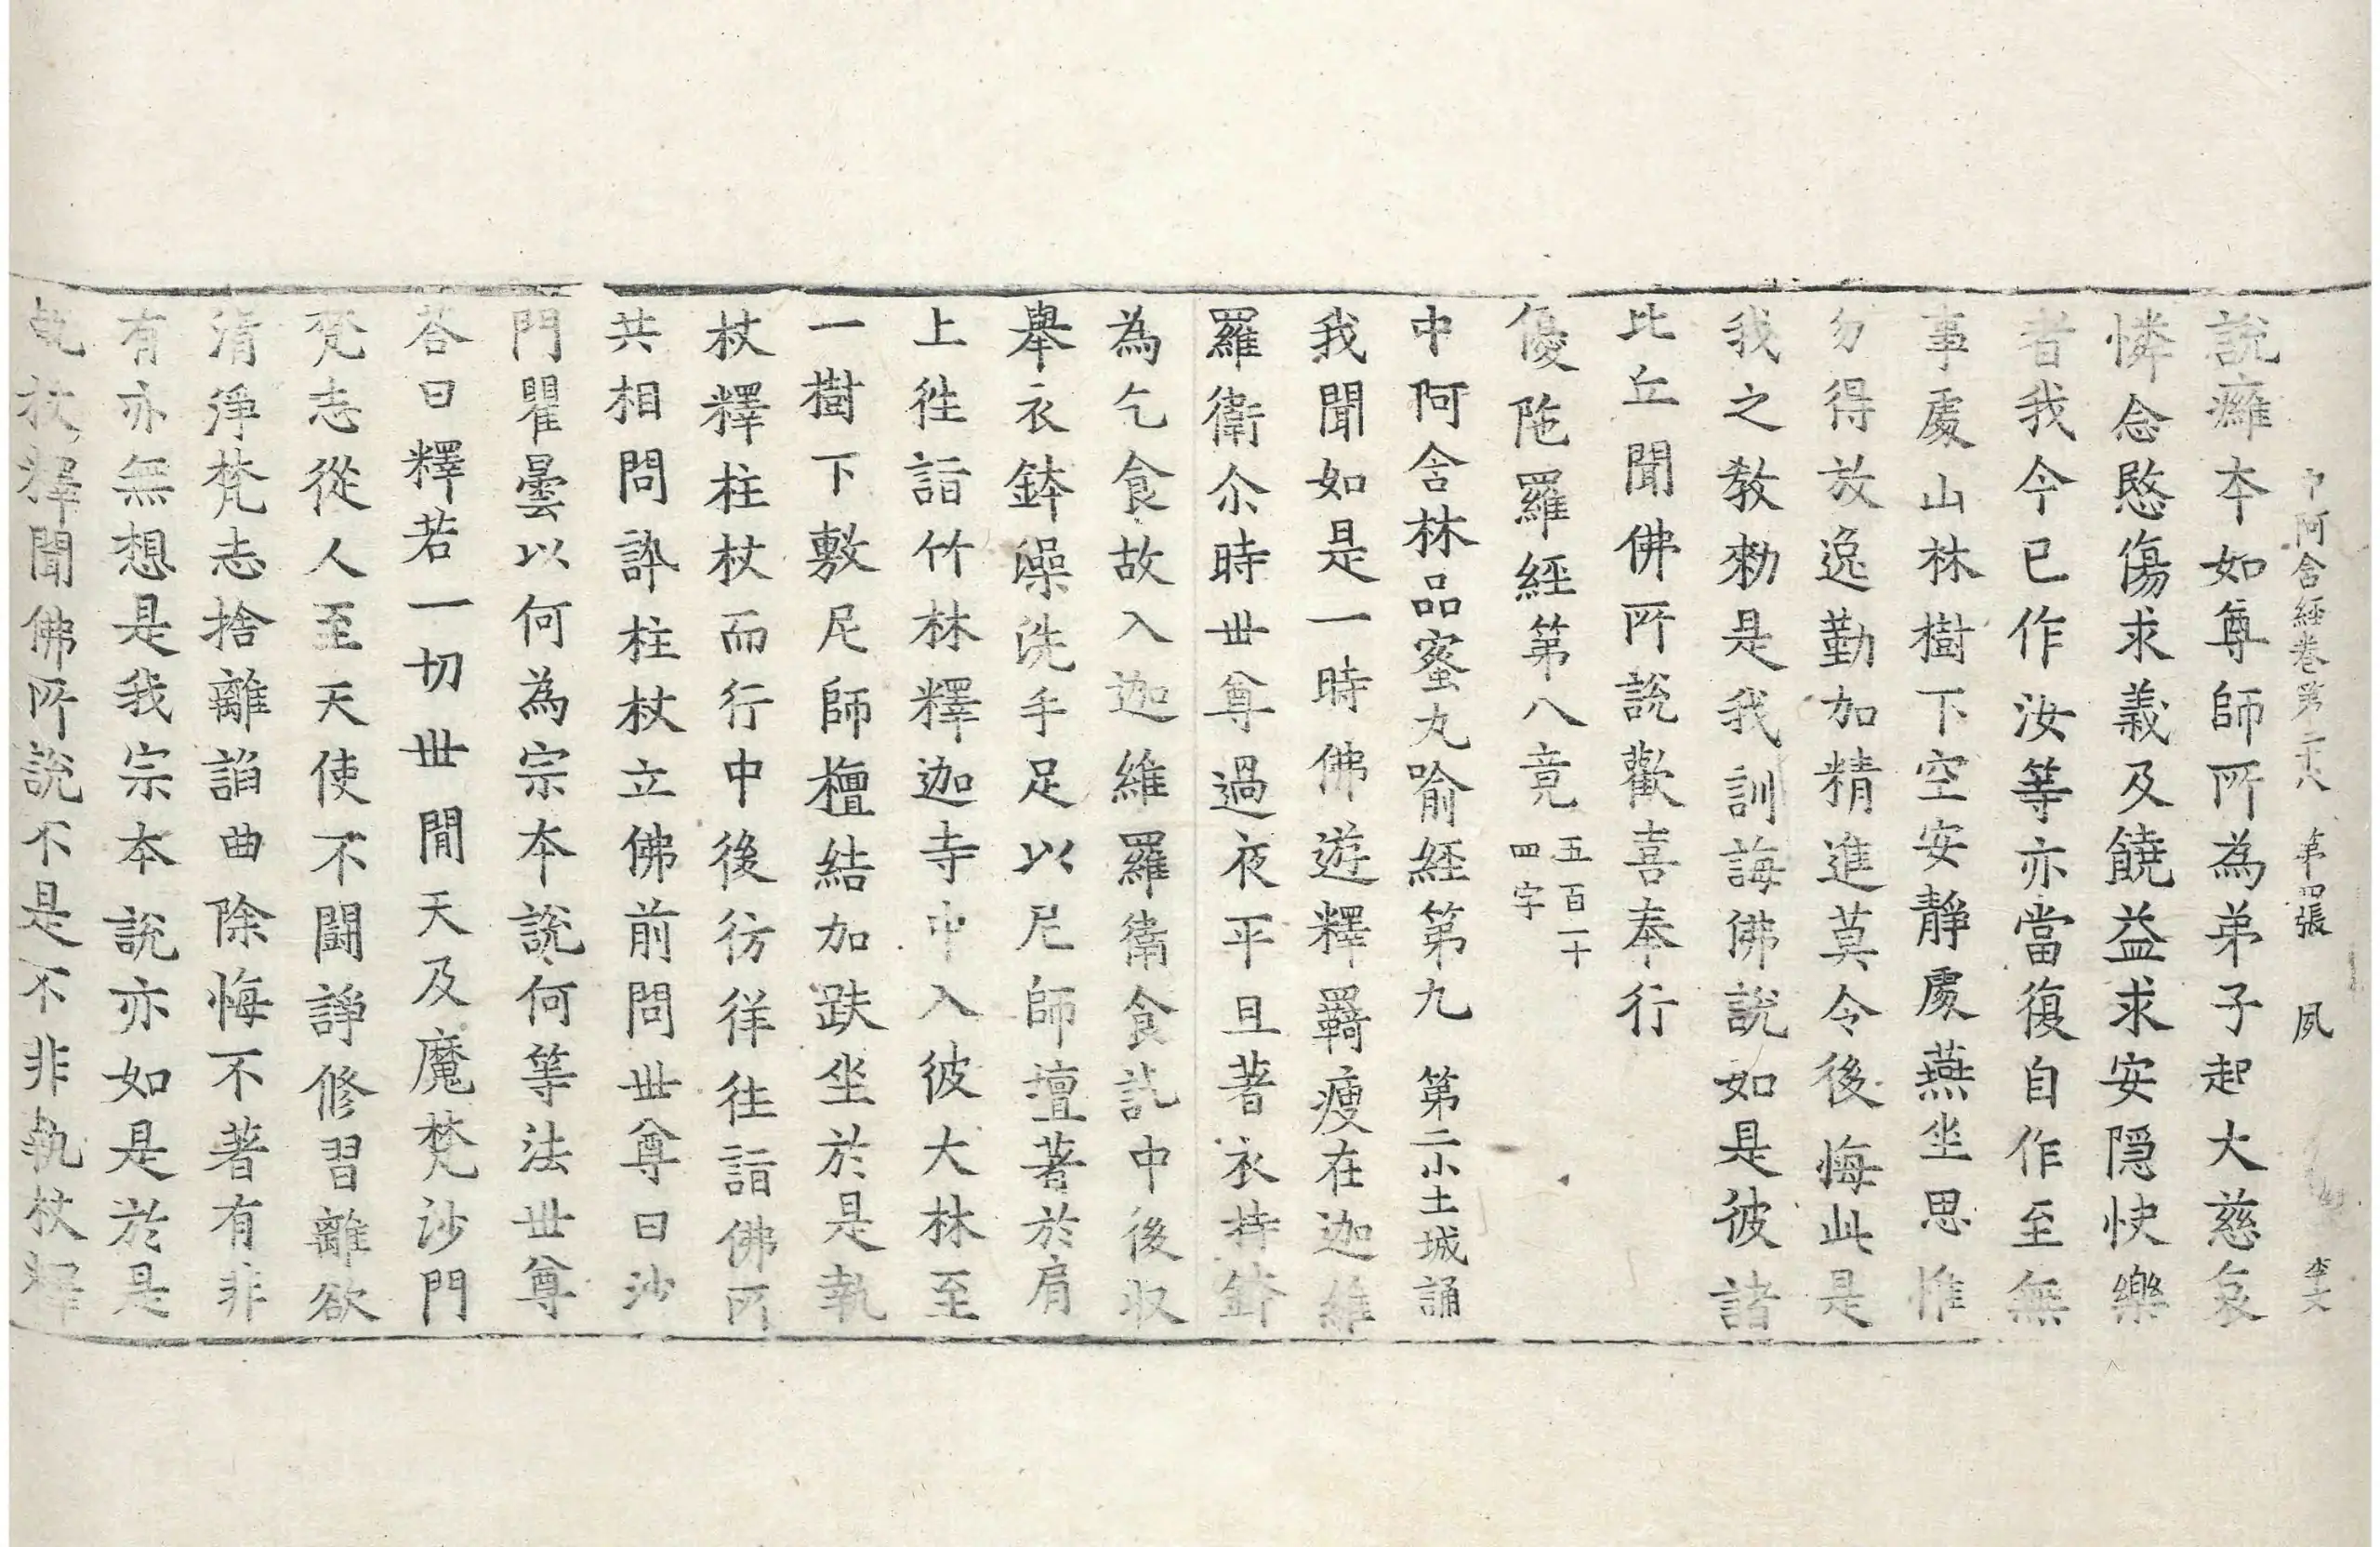 中阿含經卷第二十八 第四張 夙 李文
說癰本如尊師所為弟子起大慈哀
憐念愍傷求義及饒益求安隱快樂
者我今已作汝等亦當復自作至無
事處山林樹下空安靜處燕坐思惟
勿得放逸勤加精進莫令後悔此是
我之敎勑是我訓誨佛說如是彼諸
比丘聞佛所說歡喜奉行
優陁羅經第八竟 五百一十四字
中阿含林品蜜丸喻經第九 第二小土城誦
我聞如是一時佛遊釋羇瘦在迦維
羅衛尒時世尊過夜平旦著衣持鉢
為乞食故入迦維羅衛食訖中後收
舉衣鉢澡洗手足以尼師壇著於肩
上徃詣竹林釋迦寺中入彼大林至
一樹下敷尼師檀結加趺坐於是執
杖釋柱杖而行中後彷徉往詣佛所
共相問訊柱杖立佛前問世尊曰沙
門瞿曇以何為宗本說何等法世尊
荅曰釋若一切世閒天及魔梵沙門
梵志從人至天使不鬪諍修習離欲
清淨梵志捨離諂曲除悔不著有非
有亦無想是我宗本說亦如是於是
執杖釋聞佛所說不是不非執杖釋